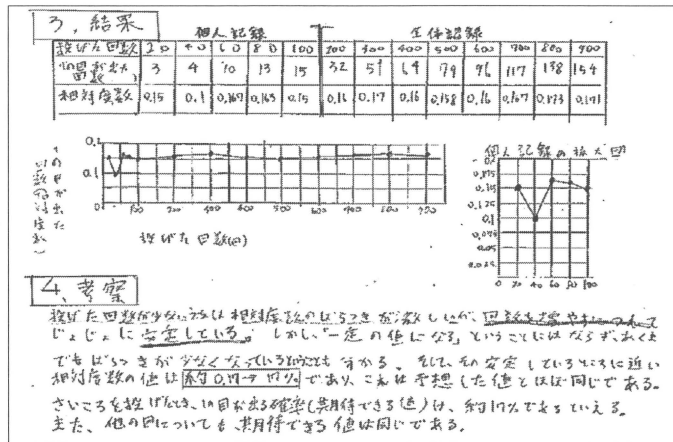 3, 結果
個人記録 全体記録
投げた回数 20 40 60 80 100 200 300 400 500 600 700 800 900
1の目が出た回数 3 4 10 13 15 32 51 64 79 96 117 138 154
相対度数 0.15 0.1 0.167 0.163 0.15 0.16 0.17 0.16 0.158 0.16 0.167 0.173 0.171
個人記録の拡大図
0.1
0
投げた回数(回)
0.175
0.15
0.125
0.1
0.075
0.05
0.025
0 20 40 60 80 100
4, 考察
投げた回数が少ないうちは相対度数のばらつきが激しいが、回数を増やすにつれて
じょじょに安定している。しかし、「一定の値になる」ということにはならず、あくま
でもばらつきが少なくなっているということも分かる。そして、その安定しているところに近い
相対度数の値は約0.17→17%であり、これは予想した値とほぼ同じである。
さいころを投げたとき、1の目が出る確率(期待できる値)は、約17%であるといえる。
また、他の目についても期待できる値は同じである。